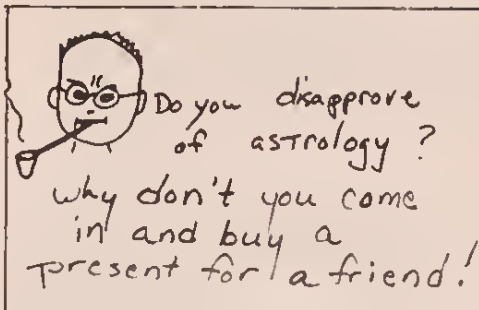 Do you disapprove
of astrology?
why don't you come
in and buy a
present for a friend!